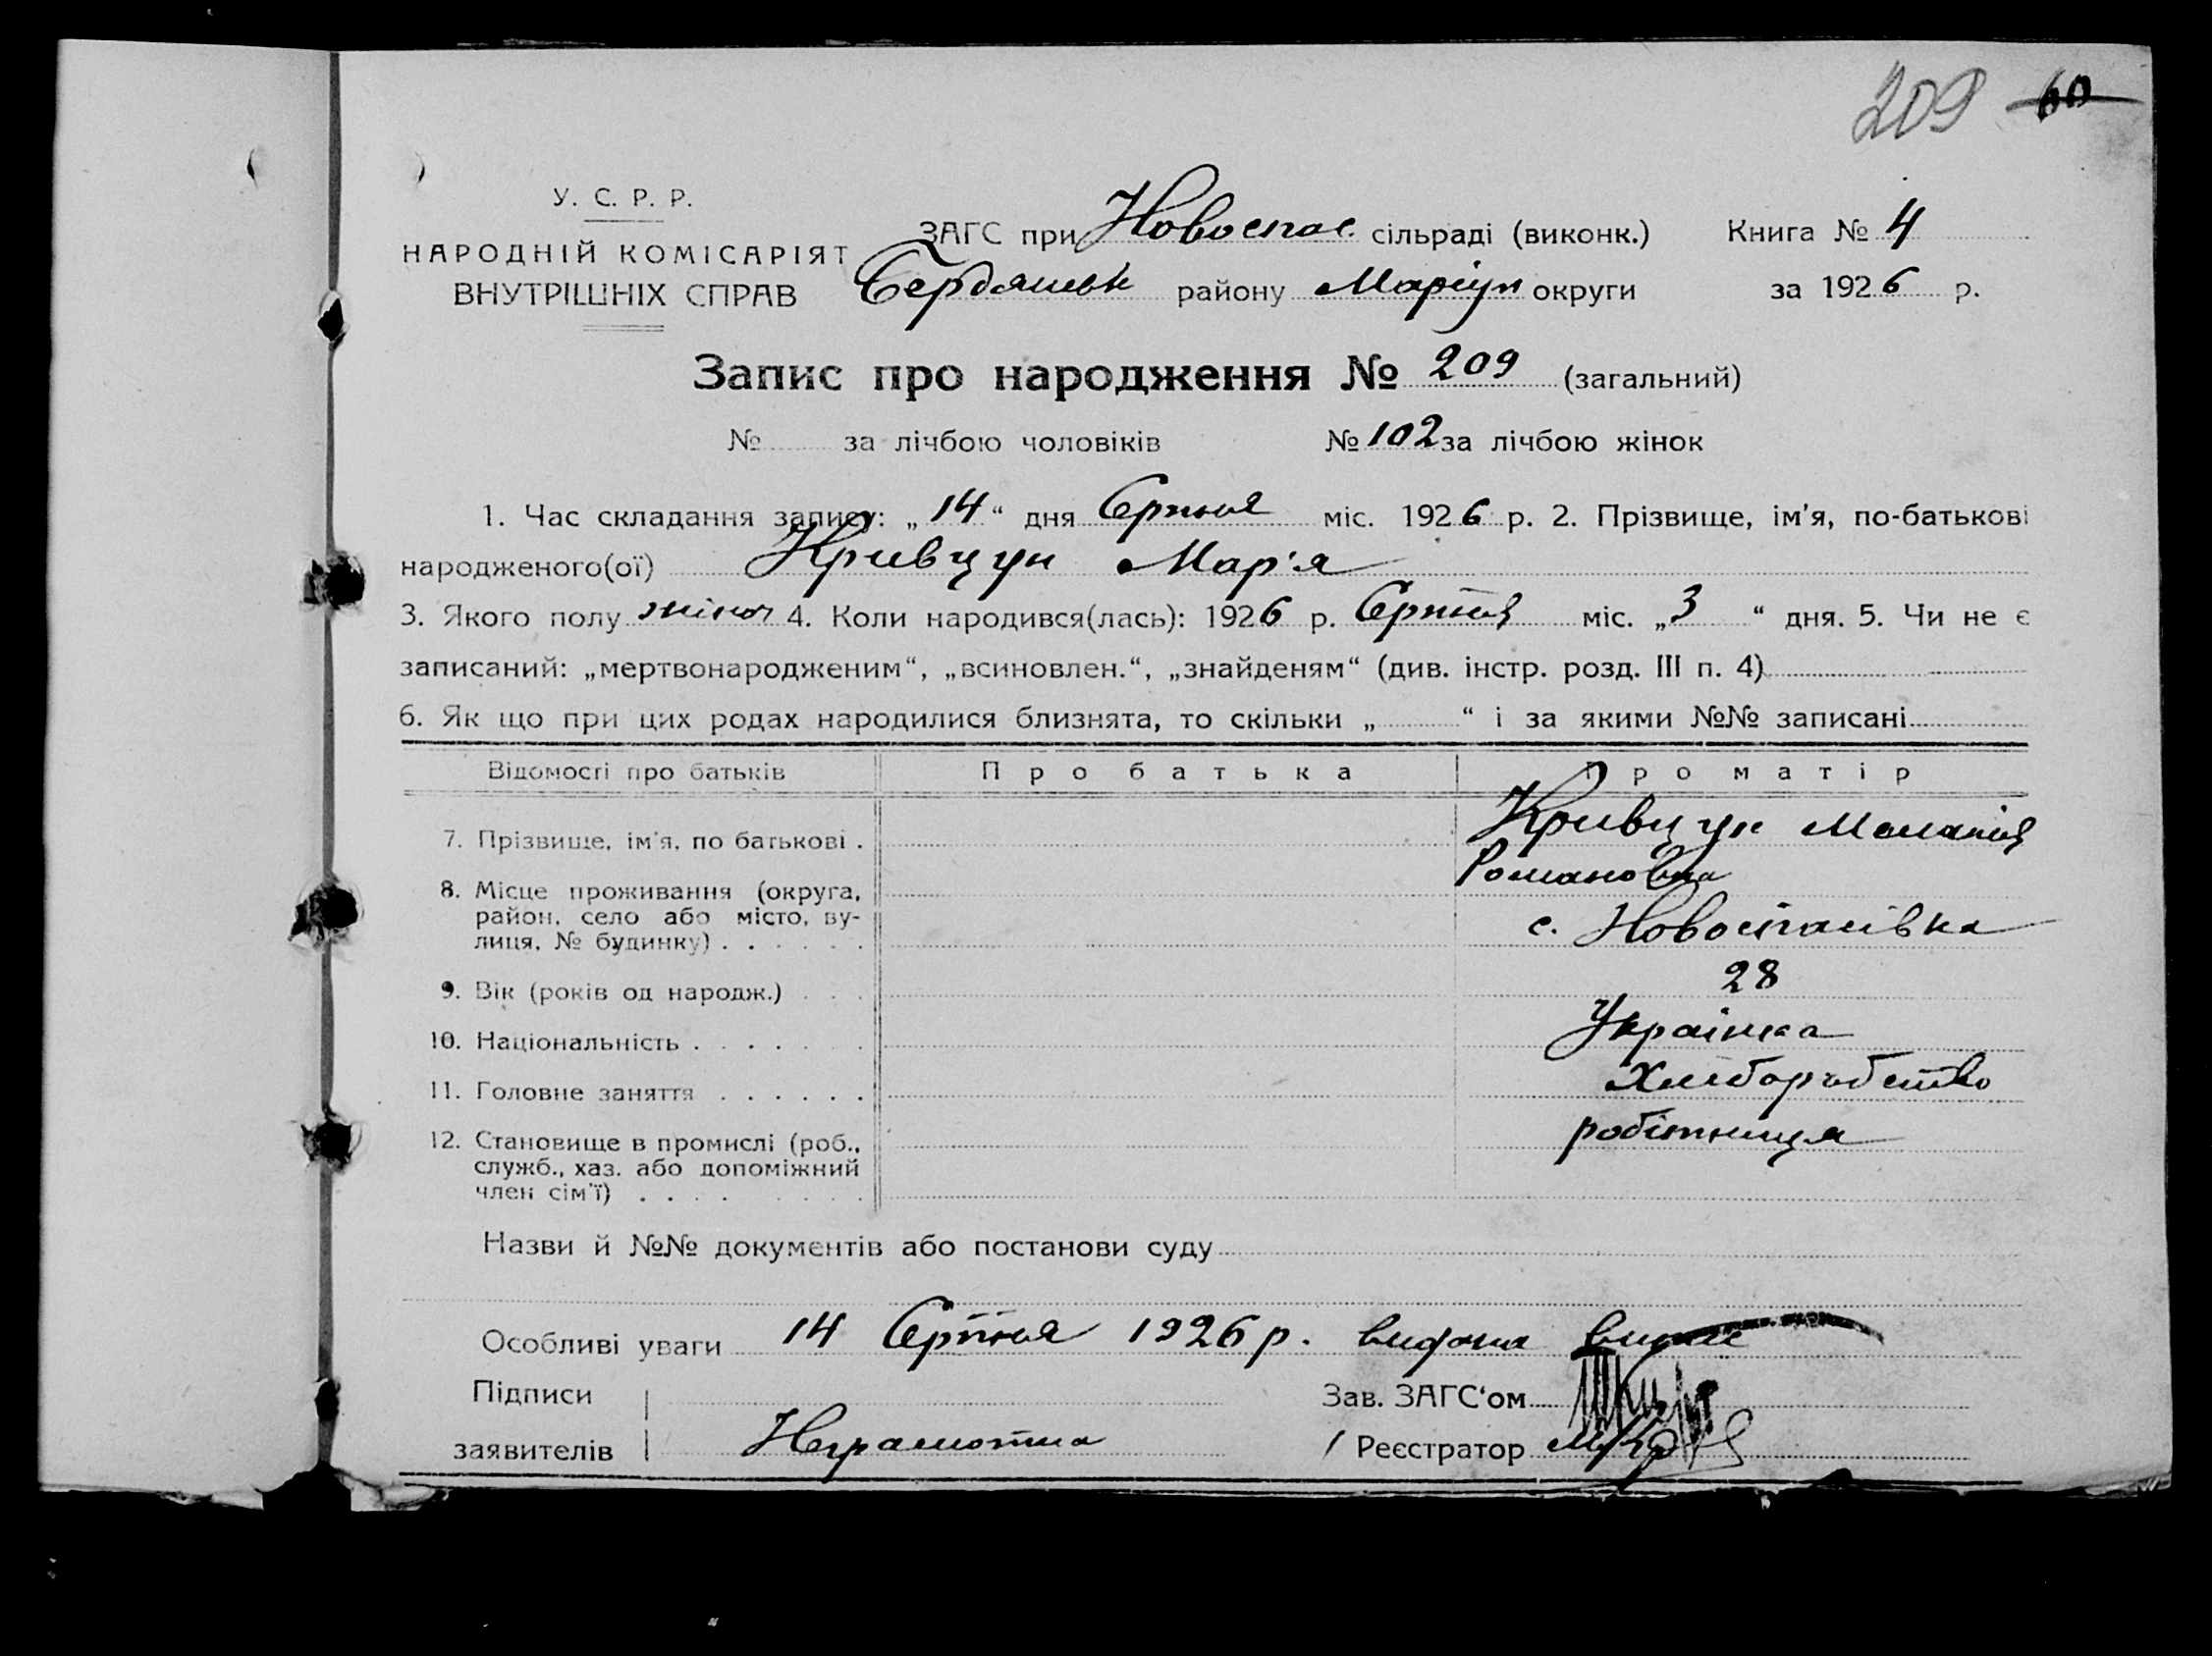 209 60
У. С. Р. Р.
НАРОДНІЙ КОМІСАРІЯТ
ВНУТРІШНІХ СПРАВ
ЗАГС при Новоспас. сільраді (виконк.) Книга № 4
Бердянськ району Маріуп округи за 1926 р.
Запис про народження № 209 (загальний)
№ за лічбою чоловіків № 102 за лічбою жінок
1. Час складання запису: „14“ дня Серпня міс. 1926 р. 2. Прізвище, ім'я, по-батькові
народженого(ої) Кривцун Мар'я
3. Якого полу жіноч 4. Коли народився(лась): 1926 р. Серпня міс. „3“ дня. 5. Чи не є
записаний: „мертвонародженим“, „всиновлен.“, „знайденям“ (див. інстр. розд. III п. 4)
6. Як що при цих родах народилися близнята, то скільки „ “ і за якими №№ записані
Відомості про батьків Про батька Про матір
7. Прізвище, ім'я, по батькові . Кривцун Меланія
Романовна
8. Місце проживання (округа,
район, село або місто, ву-
лиця, № будинку) . . . . . . с. Новоспасівка
9. Вік (років од народж.) . . . 28
10. Національність . . . . . . . Українка
11. Головне заняття . . . . . . Хліборобство
12. Становище в промислі (роб.,
служб., хаз. або допоміжний
член сім'ї) . . . . . . . . робітниця
Назви й №№ документів або постанови суду
Особливі уваги 14 Серпня 1926 р. видана випис
Підписи
заявителів Неграмотна
Зав. ЗАГС'ом
Реєстратор